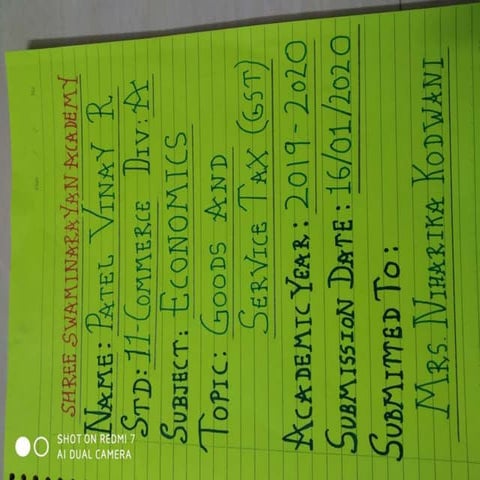 SHREE SWAMINARAYAN ACADEMY
NAME: PATEL VINAY R
STD: 11-COMMERCE DIV: A
SUBJECT: ECONOMICS
TOPIC: GOODS AND
SERVICE TAX (GST)
ACADEMIC YEAR: 2019-2020
SUBMISSION DATE: 16/01/2020
SUBMITTED TO:
MRS. NIHARIKA KODWANI
SHOT ON REDMI 7
AI DUAL CAMERA